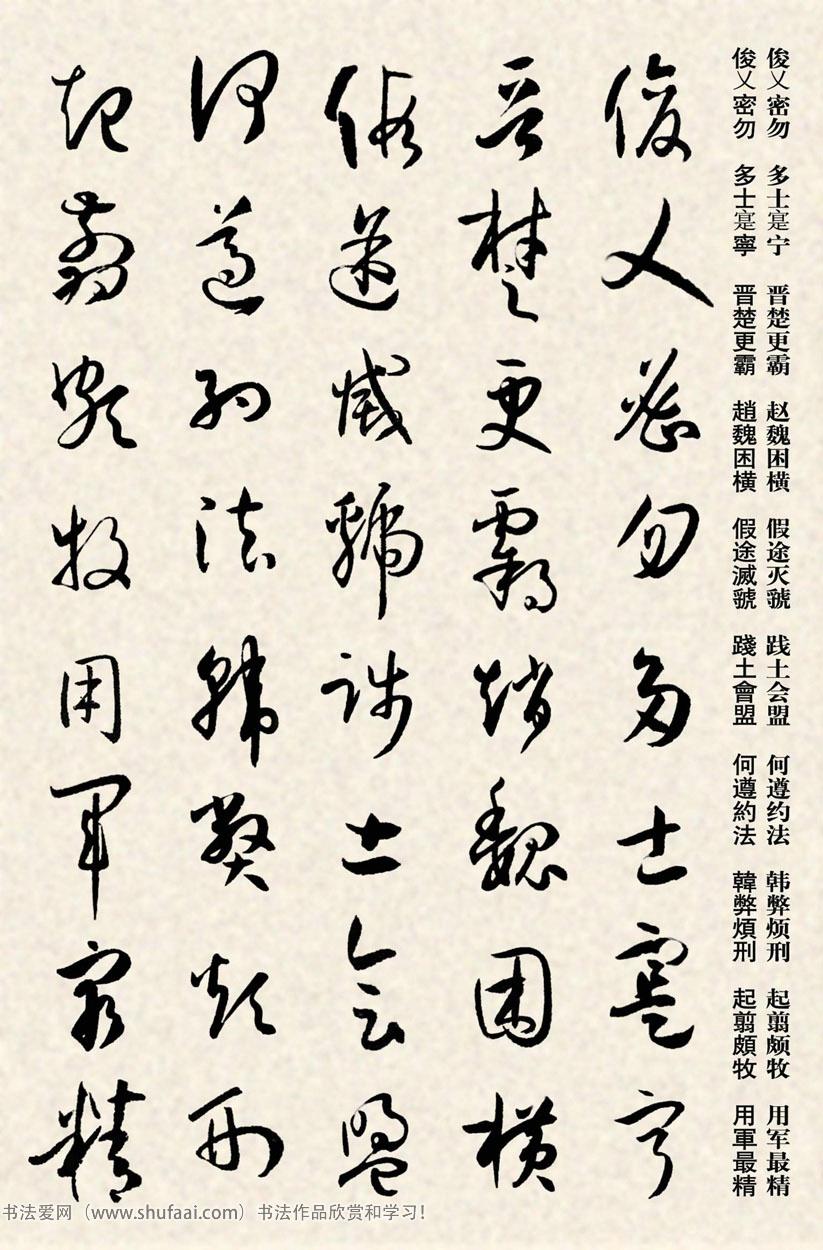 俊乂密勿 多士寔宁 晋楚更霸 赵魏困横 假途灭虢 践土会盟 何遵约法 韩弊烦刑 起翦颇牧 用军最精
俊乂密勿 多士寔寧 晋楚更霸 趙魏困橫 假途滅虢 踐土會盟 何遵約法 韓弊煩刑 起翦頗牧 用軍最精
俊乂密勿多士寔寧
晋楚更霸趙魏困橫
假途滅虢踐土會盟
何遵約法韓弊煩刑
起翦頗牧用軍最精
书法爱网（www.shufaai.com）书法作品欣赏和学习！